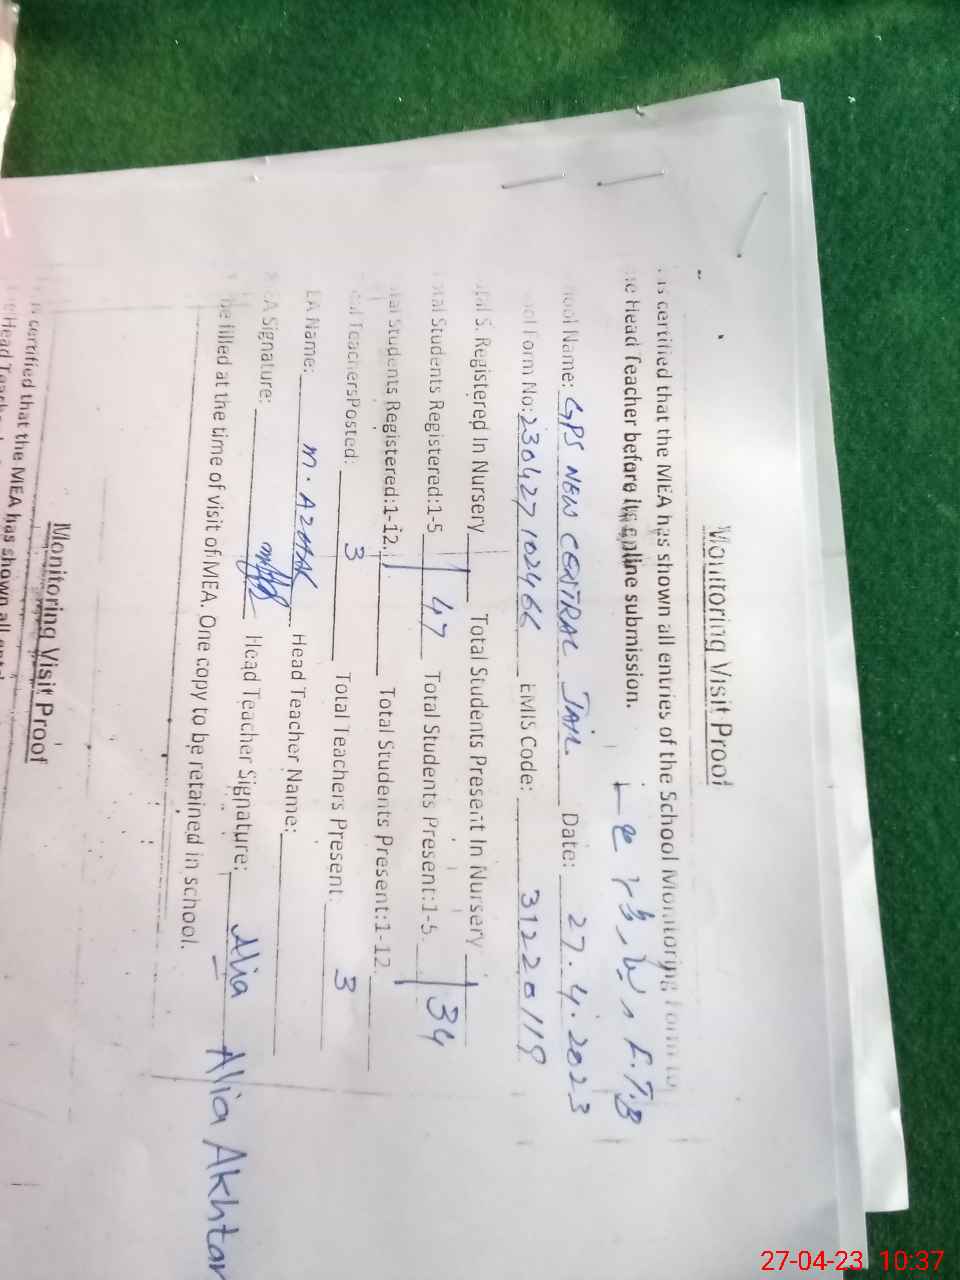 Monitoring Visit Proof
is certified that the MEA has shown all entries of the School Monitoring Form to
the Head Teacher before its online submission.
ool Name: GPS NEW CENTRAL JAIL Date: 27.4.2023
ool Form No: 230427102466 EMIS Code: 31220119
tal S. Registered In Nursery Total Students Present In Nursery
otal Students Registered:1-5 47 Total Students Present:1-5. 34
tal Students Registered:1-12. Total Students Present:1-12.
tal TeachersPosted: 3 Total Teachers Present. 3
EA Name: Head Teacher Name:
EA Signature: Head Teacher Signature: Alia Alia Akhtar
be filled at the time of visit of MEA. One copy to be retained in school.
Monitoring Visit Proof
certified that the MEA has shown all
Head
27-04-23 10:37